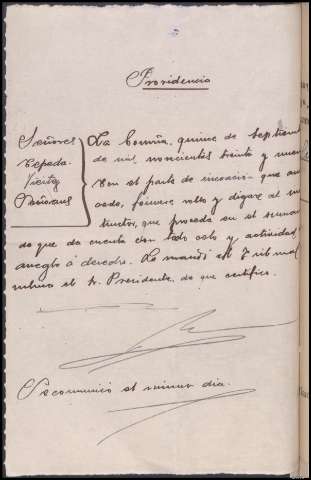 Providencia
Señores
Cepeda
Vieitez
La Coruña, quince de Septiem
de mil novecientos treinta y nueve
Con el parte de incoación que an
cede, fórmese rollo y dígase al ins
tructor, que proceda en el suma
do que da cuenta con todo celo y actividad,
arreglo á derecho. Lo mandó el Tribunal
rubrica el Sr. Presidente, de que certifico.
Se comunicó el mismo día.